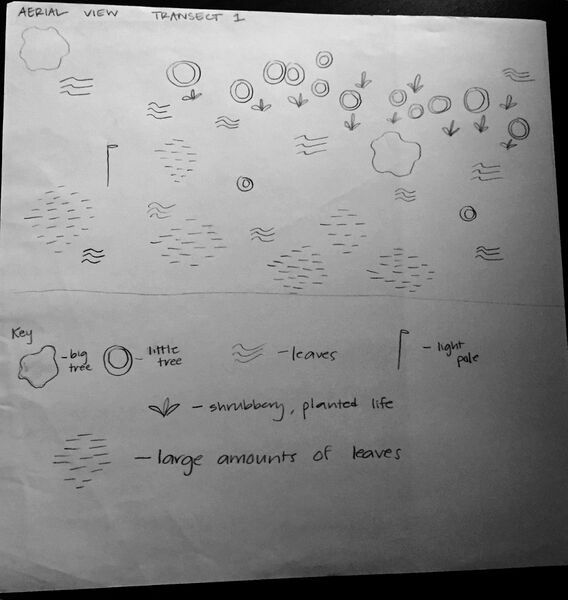 AERIAL VIEW TRANSECT 1
Key
- big tree
- little tree
- leaves
- light pole
- shrubbery, planted life
- large amounts of leaves